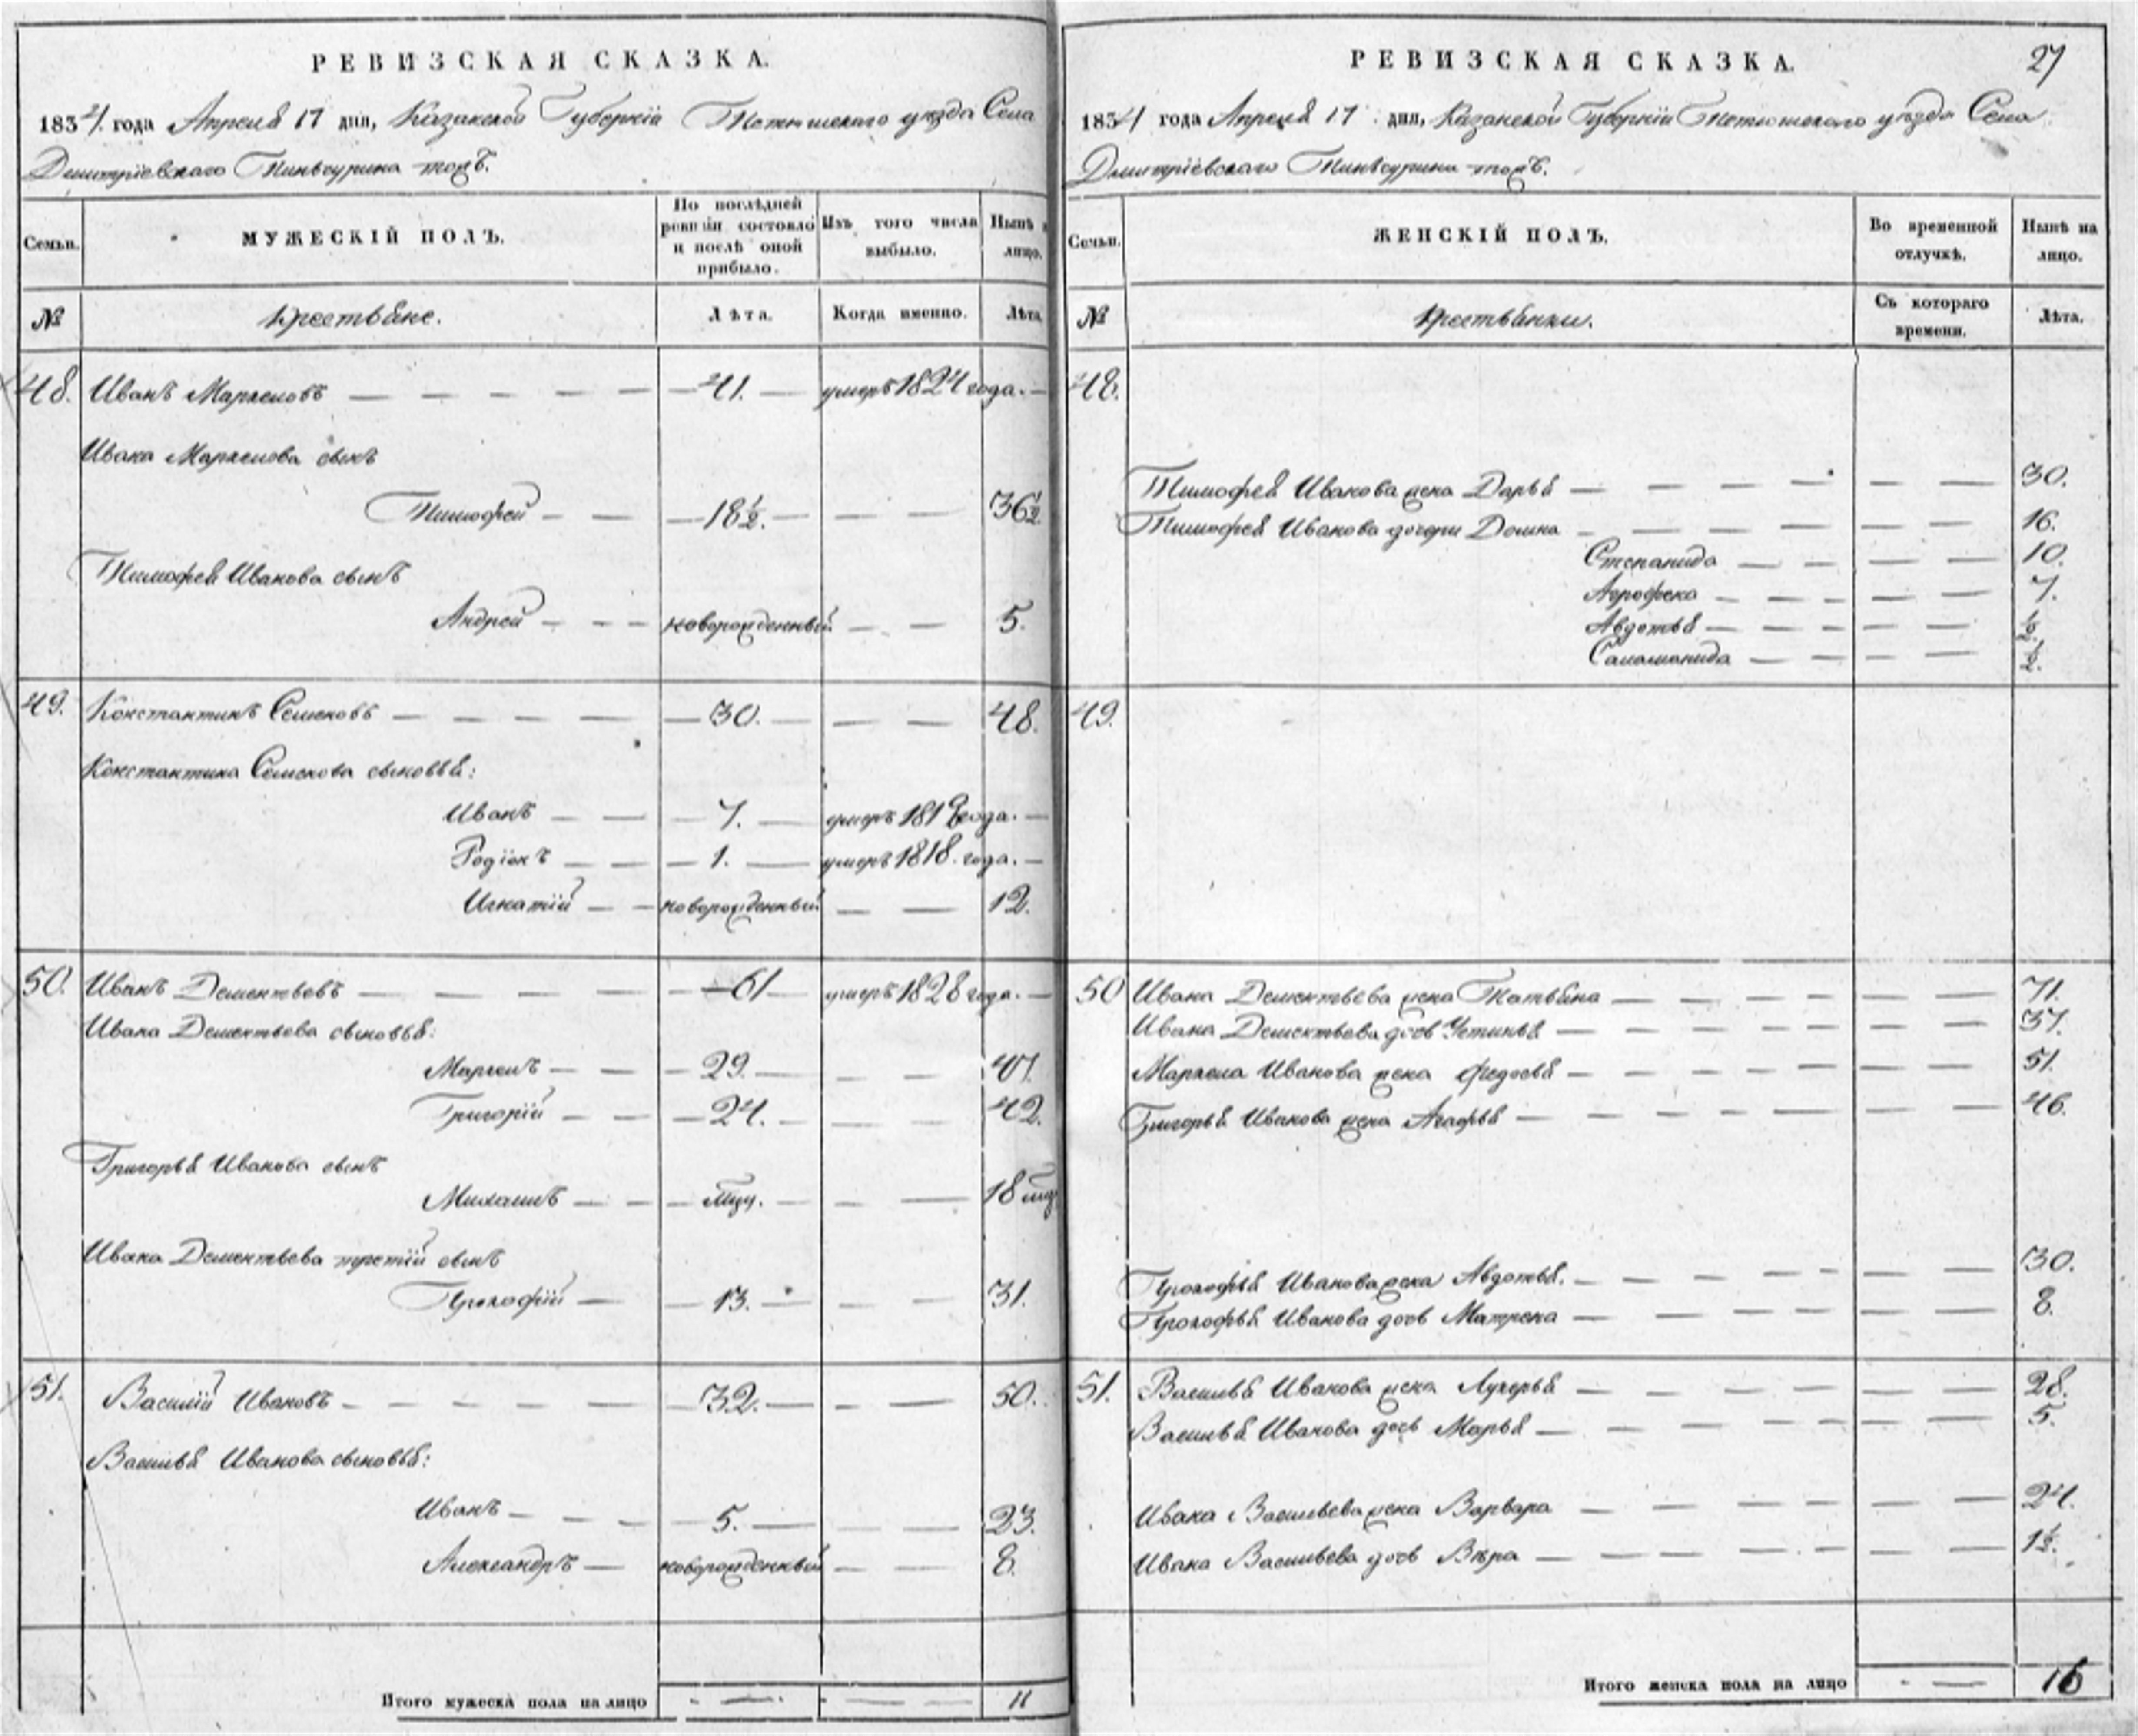 РЕВИЗСКАЯ СКАЗКА.
1834 года Апреля 17 дня, Казанской Губернїи Тетюшскаго уѣзда Села
Дмитрїевскаго тожъ.
Семьи.
МУЖЕСКІЙ ПОЛЪ.
По послѣдней ревизіи состояло и послѣ оной прибыло.
Изъ того числа выбыло.
Нынѣ на лицо.
№
Крестьяне.
Лѣта.
Когда именно.
Лѣта
48. Иванъ Маркеловъ — 41. — умеръ 1824 года. —
Ивана Маркелова сынъ
Тимофей — 18½. — 36½
Тимофея Иванова сынъ
Андрей — новорожденный — 5.
49. Константинъ Семеновъ — 30. — 48.
Константина Семенова сыновья:
Иванъ — 7. — умеръ года. —
Родїонъ — 1. — умеръ 1818. года. —
Игнатїй — новорожденный — 12.
50. Иванъ Дементьевъ — 61 — умеръ 1828 года. —
Ивана Дементьева сыновья:
Маркелъ — 29. — 47.
Григорїй — 24. — 42.
Григорья Иванова сынъ
— 18
Ивана Дементьева третїй сынъ
Прокофїй — 13. — 31.
51. Василїй Ивановъ — 32. — 50.
Василья Иванова сыновья:
Иванъ — 5. — 23.
Александръ — новорожденный — 8.
Итого мужеска пола на лицо — — 11
РЕВИЗСКАЯ СКАЗКА.
27
1834 года Апреля 17 дня, Казанской Губернїи Тетюшскаго уѣзда Села
Дмитрїевскаго тожъ.
Семьи.
ЖЕНСКІЙ ПОЛЪ.
Во временной отлучкѣ.
Нынѣ на лицо.
№
Крестьянки.
Съ котораго времени.
Лѣта.
48.
Тимофея Иванова жена Дарья — 30.
Тимофея Иванова дочери Домна — 16.
Степанида — 10.
Агрофена — 7.
Авдотья — ½
Саломанида — ½.
49.
50 Ивана Дементьева жена Татьяна — 71.
Ивана Дементьева дочь Устинья — 37.
Маркела Иванова жена Федосья — 51.
Григорья Иванова жена Агафья — 46.
Прокофья Иванова жена Авдотья. — 30.
Прокофья Иванова дочь Матрена — 8.
51. Василья Иванова жена Лукерья — 28.
Василья Иванова дочь Марья — 5.
Ивана Васильева жена Варвара — 24.
Ивана Васильева дочь Вѣра — 1½.
Итого женска пола на лицо — 16